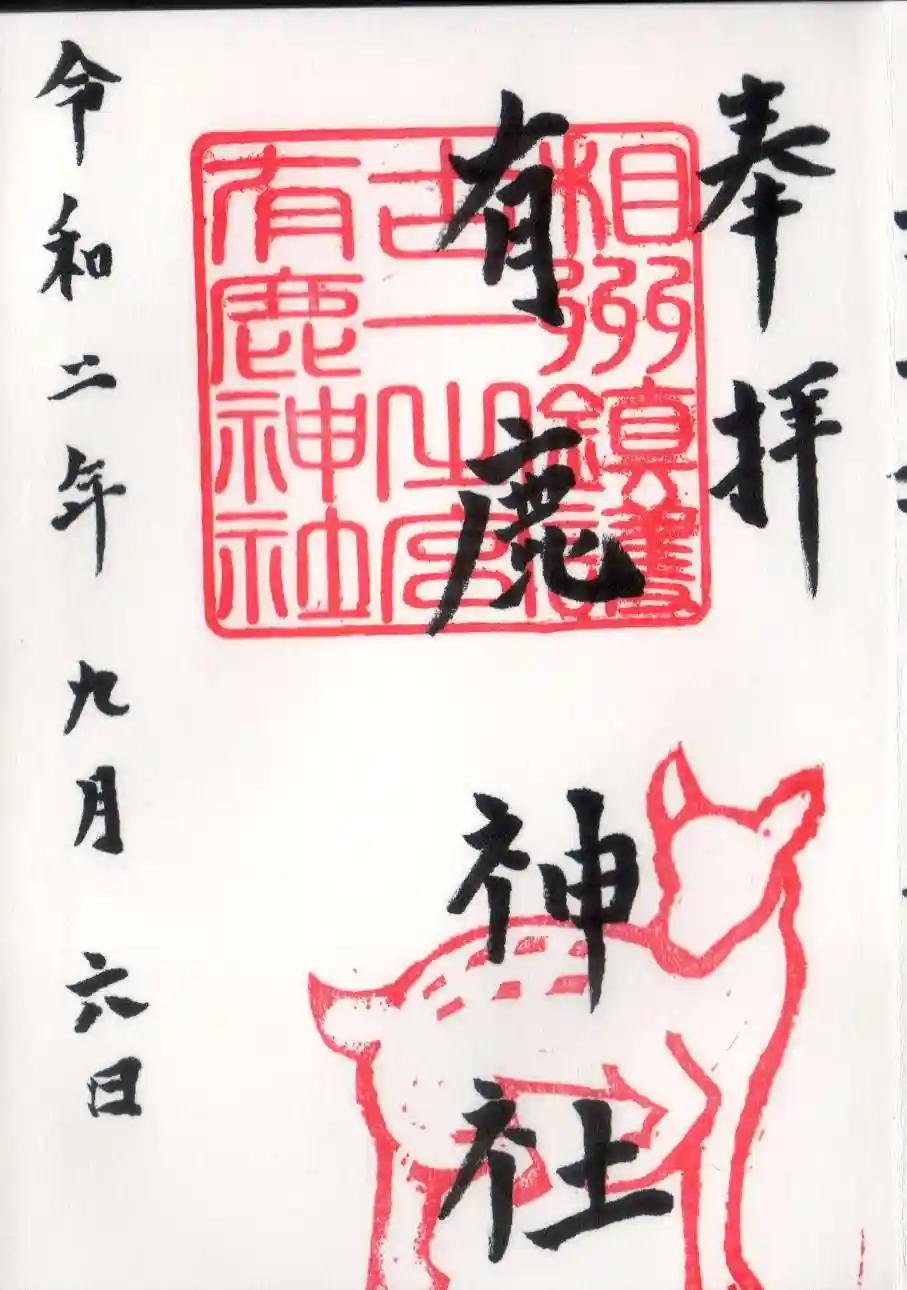 奉拝
有鹿神社
令和二年九月六日
相州鎮護
古一之宮
有鹿神社